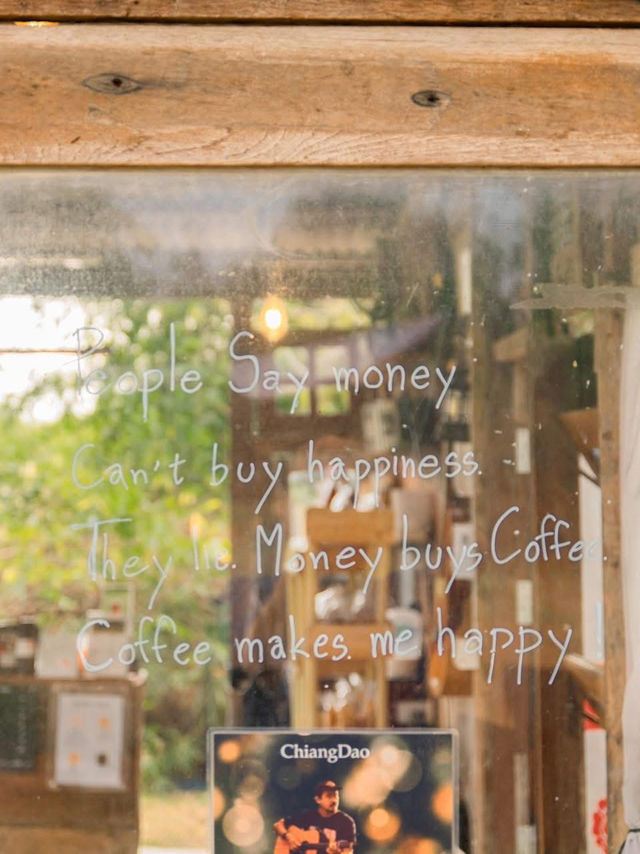 People Say money
Can't buy happiness.
They lie. Money buys Coffee.
Coffee makes me happy
ChiangDao